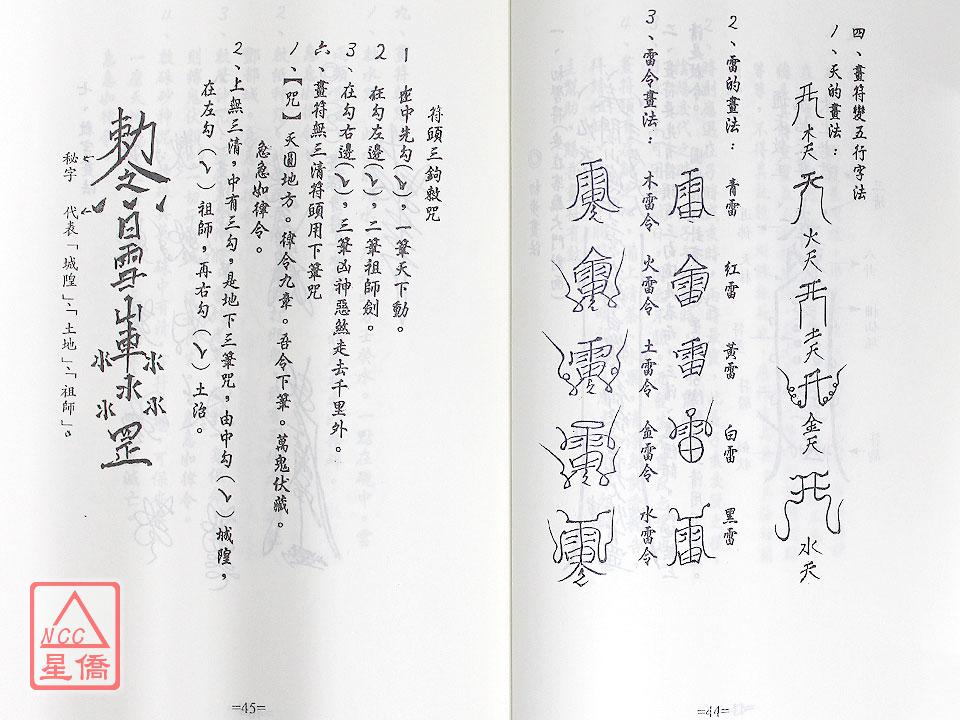 四、畫符變五行字法
1、天的畫法：
木天
火天
土天
金天
水天
2、雷的畫法：
青雷
紅雷
黃雷
白雷
黑雷
3、雷令畫法：
木雷令
火雷令
土雷令
金雷令
水雷令
=44=
符頭三鉤敕咒
1 由中先勾（㇏），一筆天下動。
2 在勾左邊（㇏），二筆祖師劍。
3、在勾右邊（㇏），三筆凶神惡煞走去千里外。
六、畫符無三清符頭用下筆咒
1、【咒】天圓地方。律令九章。吾令下筆。萬鬼伏藏。
急急如律令。
2、上無三清，中有三勾，是地下三筆咒，由中勾（㇏）城隍，
在左勾（㇏）祖師，再右勾（㇏）土治。
敕令
白雪山車水罡
水 水
水 水
秘字
代表「城隍」、「土地」、「祖師」。
=45=
NCC
星僑